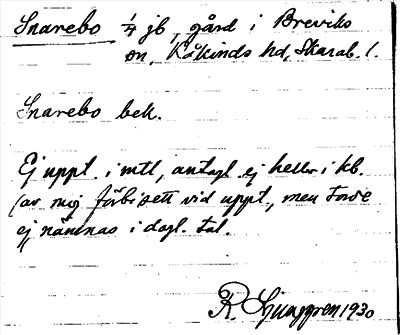 Snarebo 1/4 jb, gård i Breviks
sn, Kåkinds hd, Skarab. l.
Snarebo bek.
Ej uppt. i mtl, antagl. ej heller i kb.
(av mig förbisett vid uppt., men torde
ej nämnas i dagl. tal.
R. Ljunggren 1930